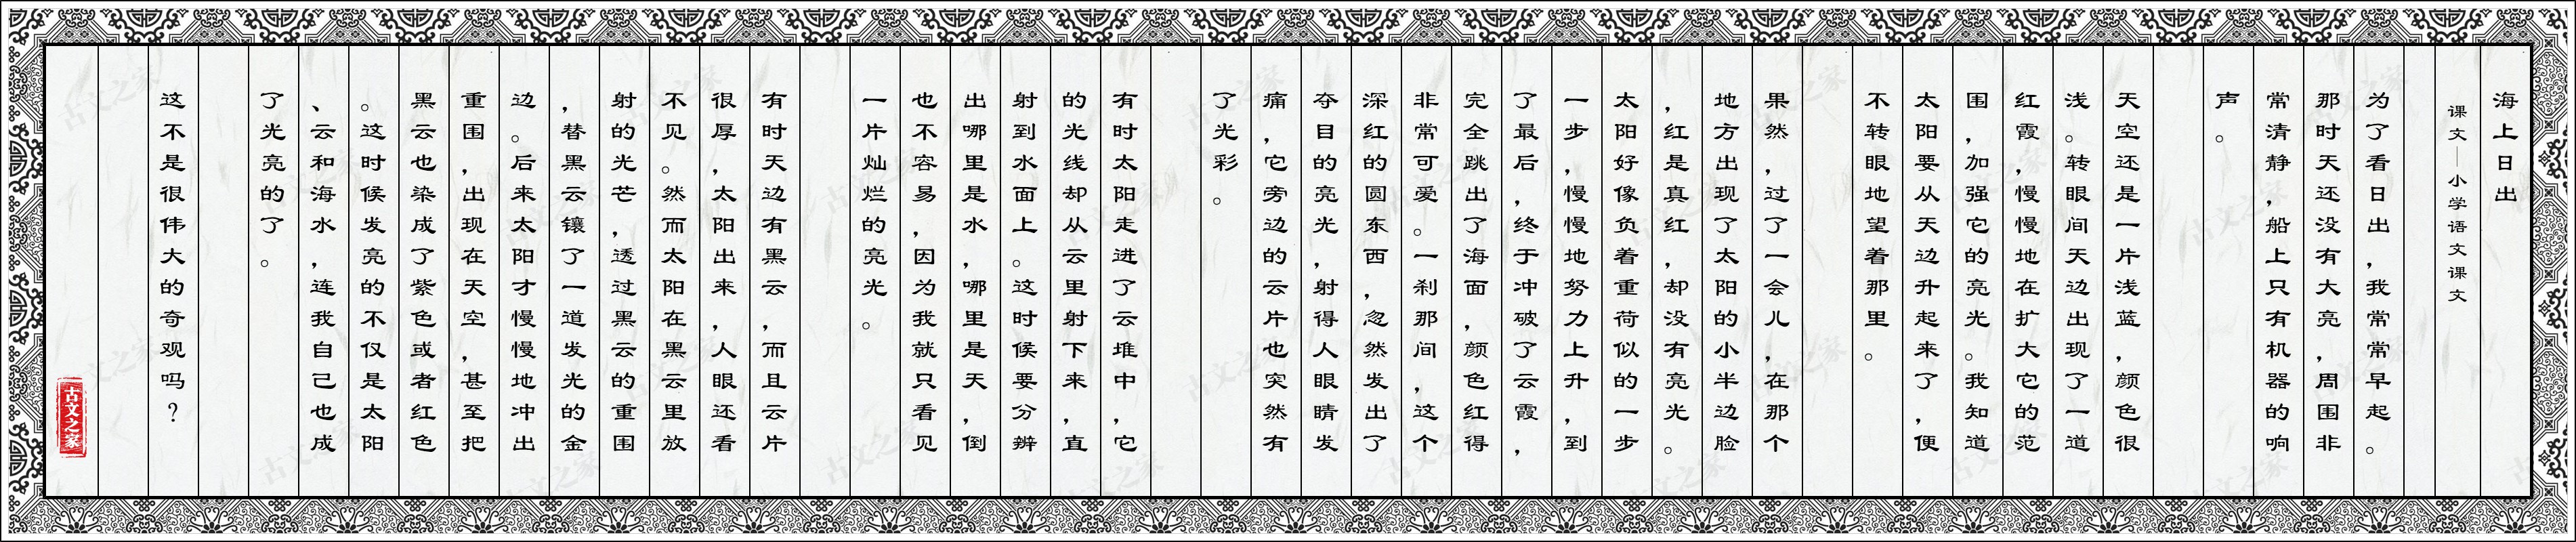 海上日出
课文—小学语文课文
为了看日出，我常常早起。
那时天还没有大亮，周围非
常清静，船上只有机器的响
声。
天空还是一片浅蓝，颜色很
浅。转眼间天边出现了一道
红霞，慢慢地在扩大它的范
围，加强它的亮光。我知道
太阳要从天边升起来了，便
不转眼地望着那里。
果然，过了一会儿，在那个
地方出现了太阳的小半边脸
，红是真红，却没有亮光。
太阳好像负着重荷似的一步
一步，慢慢地努力上升，到
了最后，终于冲破了云霞，
完全跳出了海面，颜色红得
非常可爱。一刹那间，这个
深红的圆东西，忽然发出了
夺目的亮光，射得人眼睛发
痛，它旁边的云片也突然有
了光彩。
有时太阳走进了云堆中，它
的光线却从云里射下来，直
射到水面上。这时候要分辨
出哪里是水，哪里是天，倒
也不容易，因为我就只看见
一片灿烂的亮光。
有时天边有黑云，而且云片
很厚，太阳出来，人眼还看
不见。然而太阳在黑云里放
射的光芒，透过黑云的重围
，替黑云镶了一道发光的金
边。后来太阳才慢慢地冲出
重围，出现在天空，甚至把
黑云也染成了紫色或者红色
。这时候发亮的不仅是太阳
、云和海水，连我自己也成
了光亮的了。
这不是很伟大的奇观吗？
古文之家